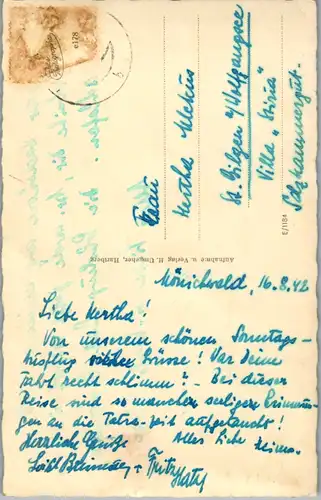 Frau
Hertha
St. Gilgen a/Wolfgangsee
Villa
Salzkammergut.
E/1184
Aufnahme u. Verlag R. Umgeher, Hartberg
Mönichwald, 16.8.42
Liebe Hertha!
Von unserem schönen Sonntags-
ausflug Grüsse! War Deine
Fahrt recht schlimm? - Bei dieser
Reise sind so manche Erinnerun-
gen an die Tatra-zeit aufgetaucht!
Herzliche Grüße Alles Liebe
Fritz